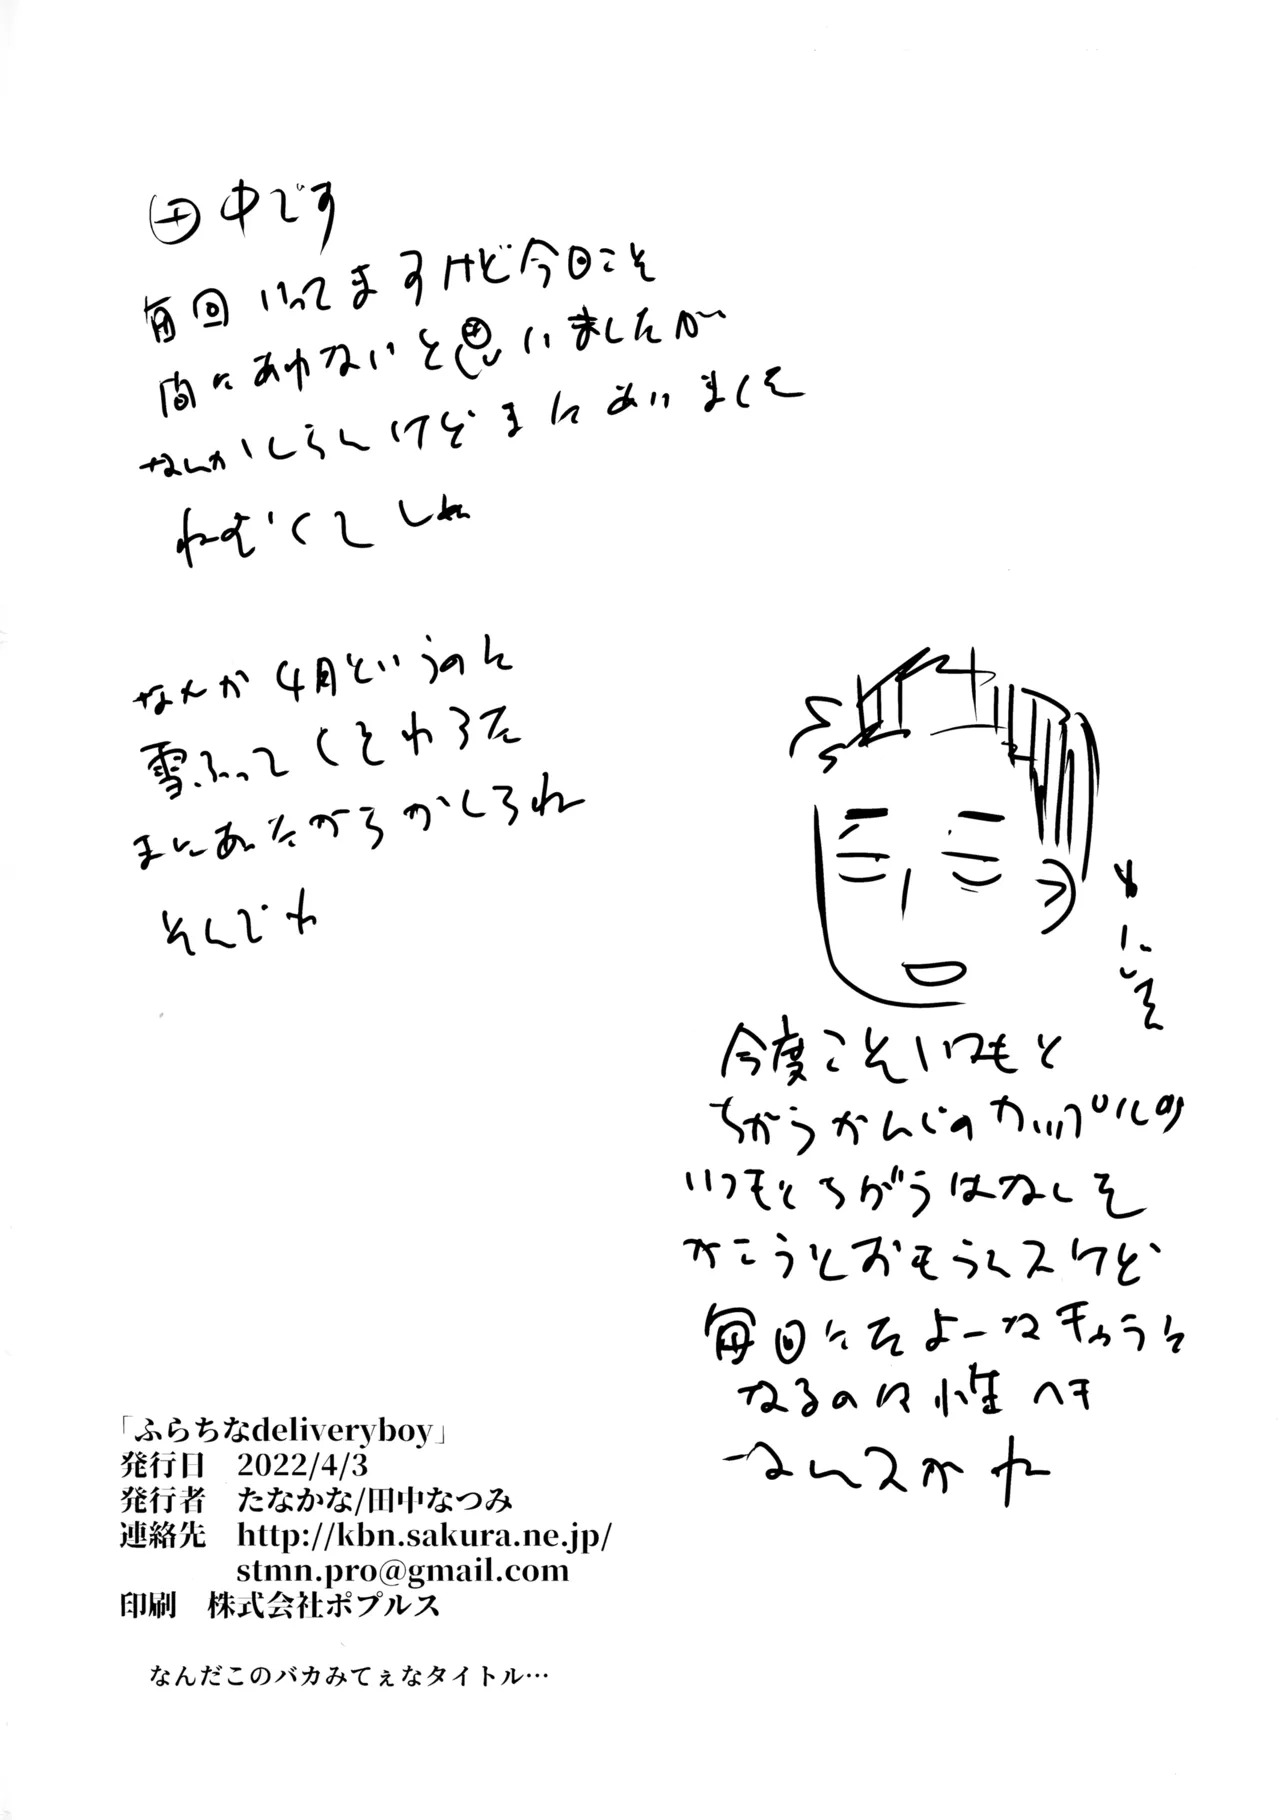 田中です
毎回いってますけど今回こそ
間にあわないと思いましたが
なんかしらんけどまにあいました
ねむくてしぬ
なんか4月というのに
雪ふってくそわろた
まにあったからかしらね
そんでわ
今度こそいつもと
ちがうかんじのカップルの
いつもとちがうはなしを
かこうとおもうんスけど
毎回にたよーなキャラに
なるのは性ヘキ
なんスかね
「ふらちなdeliveryboy」
発行日　2022/4/3
発行者　たなかな/田中なつみ
連絡先　http://kbn.sakura.ne.jp/
stmn.pro@gmail.com
印刷　株式会社ポプルス
なんだこのバカみてぇなタイトル…